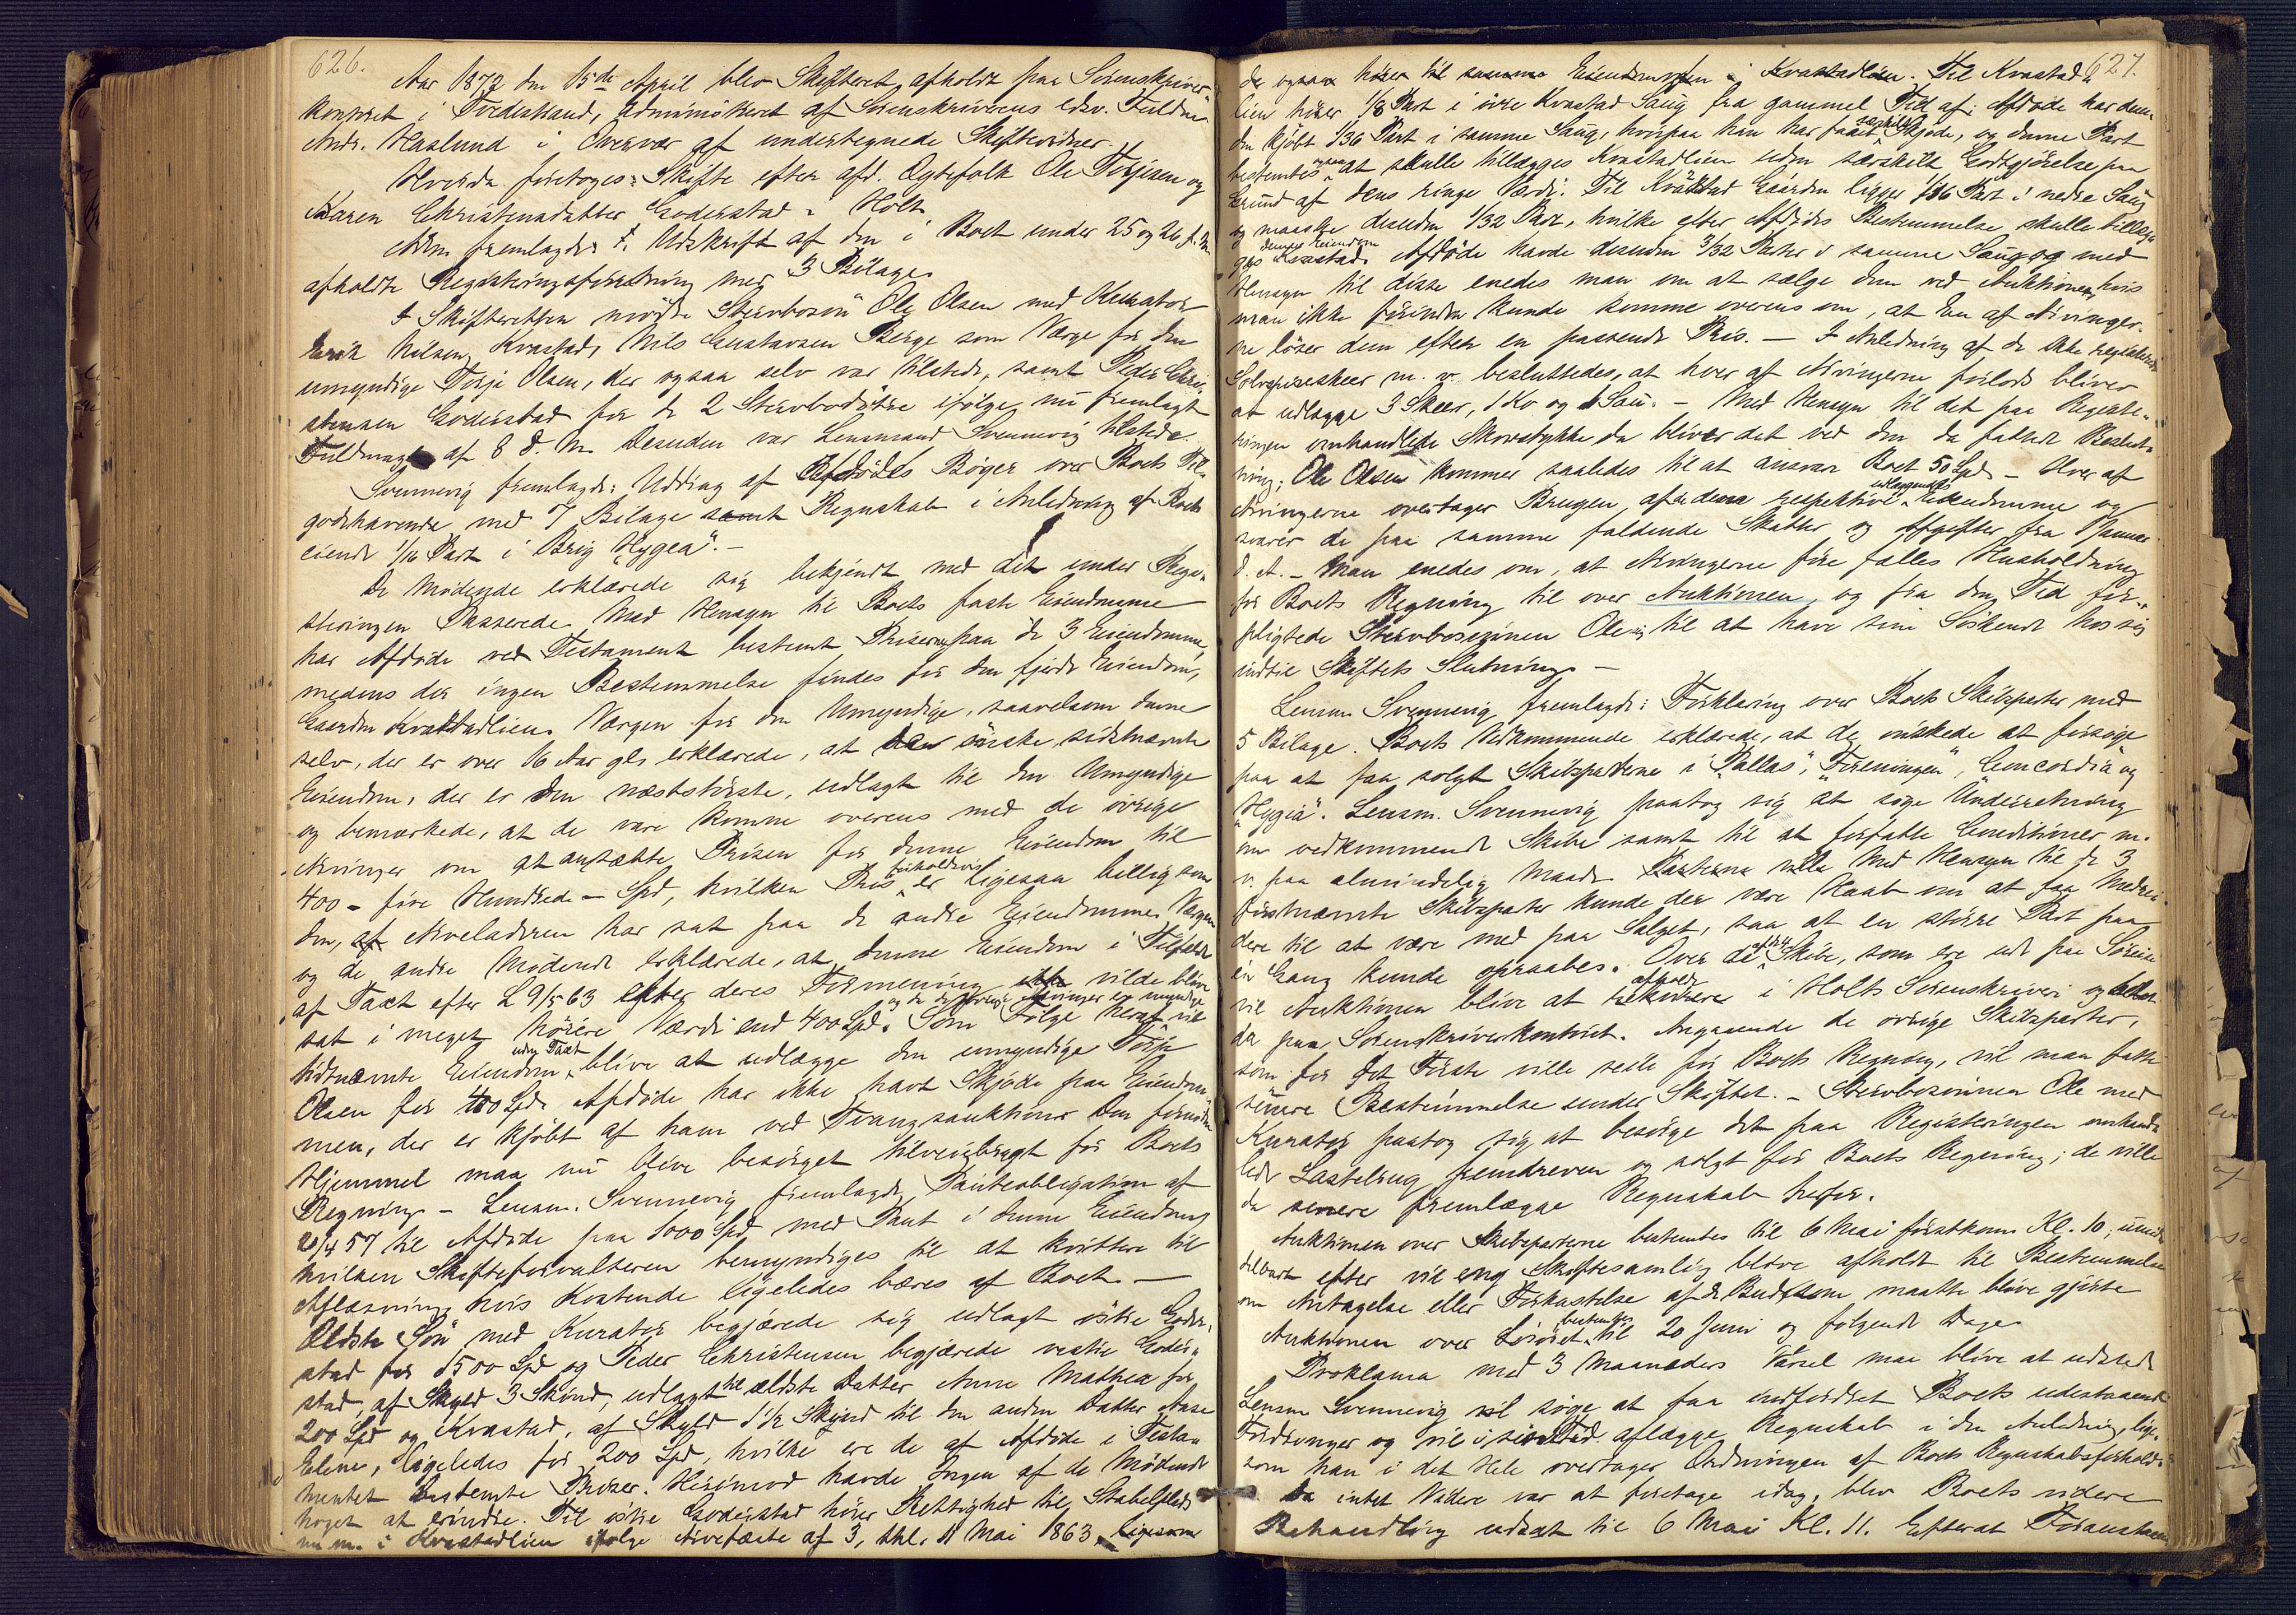 626.
Aar 1872 den 15de April blev Skifteret afholdt paa Sorenskriver
kontoret i Tvedestrand, administreret af Sorenskriverens edsv. Fuldm.
Andr. Haslund i Overvær af undertegnede Skiftevidner
Hvorda foretoges: Skifte efter afd. Egtefolk Ole Terjesen og
Karen Christensdatter Goderstad i Holt
Adm. fremlagde: 1. Udskrift af den i Boet under 25 og 26 f. M.
afholdte Registreringsforretning med 3 Bilage.
I Skifteretten mødte Stervbosøn Ole Olsen med Kurator
Erik Nilsen Kvastad, Nils Gustavsen Berge som Værge for den
umyndige Terje Olsen, der ogsaa selv var tilstede, samt Peder Chri
stensen Goderstad for de 2 Stervbodøtre ifølge nu fremlagt
Fuldmagt af 8 d. M. Desuden var Lensmand Svennevig tilstede.
Svennevig fremlagde: Uddrag af Afdødes Bøger over Boets Til-
godehavende med 7 Bilage samt Regnskab i Anledning af Boets
eiende 1/16 Part i Brig "Hygea". -
De Mødende erklærede sig bekjendt med det under Regi-
streringen Passerede. Med Hensyn til Boets faste Eiendomme
har Afdøde ved Testament bestemt Priserne paa de 3 Eiendomme,
medens der ingen Bestemmelse findes for den fjerde Eiendom,
Gaarden Kvastadlien. Værgen for den Umyndige, saavelsom denne
selv, der er over 16 Aar gl. erklærede, at ønske sidstnævnte
Eiendom, der er den næststørste, udlagt til den Umyndige
og bemærkede, at de vare komne overens med de øvrige
Arvinger om at ansætte Prisen for denne Eiendom til
400 - fire Hundrede - Spd, hvilken Pris forholdsvis er ligesaa billig som
den, af Arveladeren har sat paa de andre Eiendomme. Værgen
og de andre Mødende erklærede, at denne Eiendom i Tilfælde
af Taxt efter L 9/5 63 efter deres Formening vilde blive
sat i meget høiere Værdi end 400 Spd. Som Følge heraf og da de øvrige Arvinger er myndige vil
sidstnævnte Eiendom uden Taxt blive at udlægge den umyndige Terje
Olsen for 400 Spd. Afdøde har ikke havt Skjøde paa Eiendom-
men, der er kjøbt af ham ved Tvangsauktion. Den fornødne
Hjemmel maa nu blive besørget tilveiebragt for Boets
Regning - Lensm. Svennevig fremlagde Panteobligation af
20/4 57 til Afdøde paa 1000 Spd med Pant i denne Eiendom
hvilken Skifteforvalteren bemyndiges til at kvittere til
Aflæsning, hvis Kostende ligeledes bæres af Boet. -
Ældste Søn med Kurator begjærede sig udlagt østre Goder-
stad for 1500 Spd og Peder Christensen begjærede vestre Goder-
stad, af Skyld 3 Skind, udlagt til ældste Datter Anne Mathea for
200 Spd og Kvastad, af Skyld 1 1/2 Skind til den anden Datter Aase
Elene, ligeledes for 200 Spd, hvilke ere de af Afdøde i Testa-
mentet bestemte Priser. Herimod havde Ingen af de Mødende
noget at erindre. Til østre Goderstad hører Rettighed til Stabelplads
m. m. i Kvastadlien ifølge Arvefæste af 3, thl. 11 Mai 1863, ligesom
627.
der ogsaa hører til samme Eiendommen i Kvastadlien. Til Kvastad-
lien hører 1/8 Part i øvre Kvastad Saug fra gammel Tid af; Afdøde har desu-
den kjøbt 1/36 Part i samme Saug, hvorpaa han har faaet særskilt Skjøde, og denne Part
bestemtes at skulle tillægges Kvastadlien uden særskilt Godtgjørelse paa
Grund af dens ringe Værdi. Til Kvastad Gaarden ligger 1/16 Part i nedre Saug
og maaske desuden 1/32 Part, hvilke efter Afdødes Bestemmelse skulle tillæg-
ges denne Eiendom. Afdøde havde desuden 3/32 Parter i samme Saug og med
Hensyn til disse enedes man om at sælge dem ved Auktionen, hvis
man ikke forinden kunde komme overens om, at En af Arvinger-
ne løser dem efter en passende Pris. - I Anledning af de ikke registrerede
Sølvspiseskeer m. v. besluttedes, at hver af Arvingerne forlods bliver
at udlægge 3 Skeer, 1 Ko og 1 Sau. - Med Hensyn til det paa Registe-
ringen omhandlede Skovstykke da bliver det ved den da fattede Beslut-
ning; Ole Olsen kommer saaledes til at ansvare Boet 50 Spd. - Hver af
Arvingerne overtager Brugen af de dem respektive udlæggendes Eiendomme og
svarer de paa samme faldende Skatter og Afgifter fra 1 Januar
d. A. - Man enedes om, at Arvingerne føre fælles Husholdning
for Boets Regning til over Auktionen, og fra den Tid for-
pligtede Stervbosønnen Ole sig til at have sine Søskende hos sig
indtil Skiftets Slutning. -
Lensm Svennevig fremlagde: Forklaring over Boets Skibsparter med
5 Bilage. Boets Vedkommende erklærede, at de ønskede at forsøge
paa at faa solgt Skibsparterne i "Pallas", "Foreningen", "Concordia" og
"Hygia". Lensm. Svennevig paatog sig at søge Underretning
om vedkommende Skibe samt til at forfatte Conditioner m.
v. paa almindelig Maade. Med Hensyn til de 3
førstnævnte Skibsparter kunde der være Haab om at faa Medrei-
dere til at være med paa Salget, saa at en større Part paa
en Gang kunde opraabes. Over de af de 4 Skibe, som ere ude paa Søreise
vil Auktionen blive at afholde i Holts Sorenskriveri og
da paa Sorenskriverkontoret. Angaaende de øvrige Skibsparter,
som for det Første ville seile for Boets Regning, vil man fatte
senere Bestemmelse under Skiftet. - Stervbosønnen Ole med
Kurator paatog sig at besørge det paa Registeringen omhand-
lede Lastebrug fremdreven og solgt for Boets Regning; de ville
da senere fremlægge Regnskab herfor.
Auktionen over Skibsparterne bestemtes til 6 Mai førstkom. Kl. 10; umid
delbart efter vil en Skiftesamling blive afholdt til Bestemmelse
om Antagelse eller Forkastelse af de Bud, som maatte blive gjorte
Auktionen over Løsøret bestemtes til 20 Juni og følgende Dage
Proklama med 3 Maaneders Varsel maa blive at udstede
Lensm Svennevig vil søge at faa indfordret Boets udestaaende
Fordringer og vil i sin Tid aflægge Regnskab i den Anledning, lige-
som han i det Hele overtager Ordningen af Boets Regnskabsforhold.
Da intet Videre var at foretage idag, blev Boets videre
Behandling udsat til 6 Mai Kl. 11. Efterat Foranstaaende